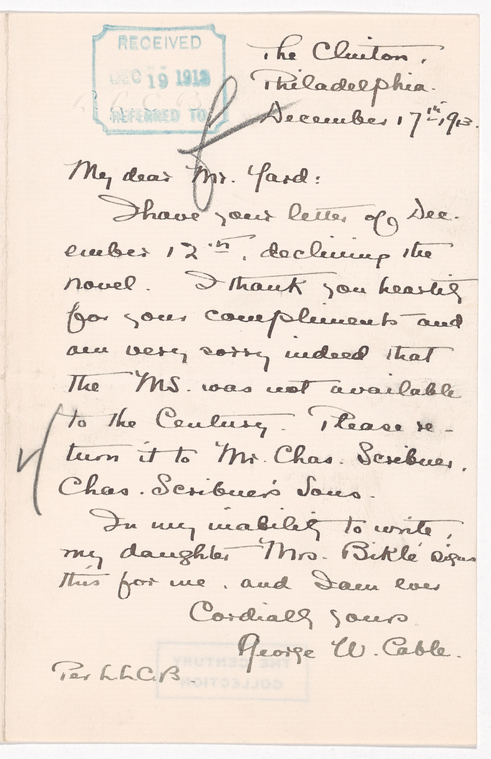 RECEIVED
DEC 19 1913
REFERRED TO
The Clinton,
Philadelphia.
December 17th 1913.
My dear Mr. Yard:
I have your letter of Dec-
ember 12th, declining the
novel. I thank you heartily
for your compliments and
am very sorry indeed that
the MS. was not available
to the Century. Please re-
turn it to Mr. Chas. Scribner,
Chas. Scribner's Sons.
In my inability to write,
my daughter Mrs. Biklé signs
this for me, and I am ever
Cordially yours
George W. Cable.
Per L.L.C.B.
THE CENTURY
COLLECTION